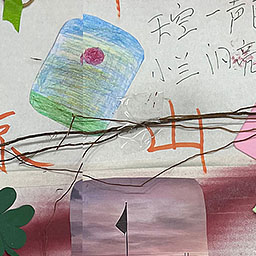 天空一声
小兰闪亮
山